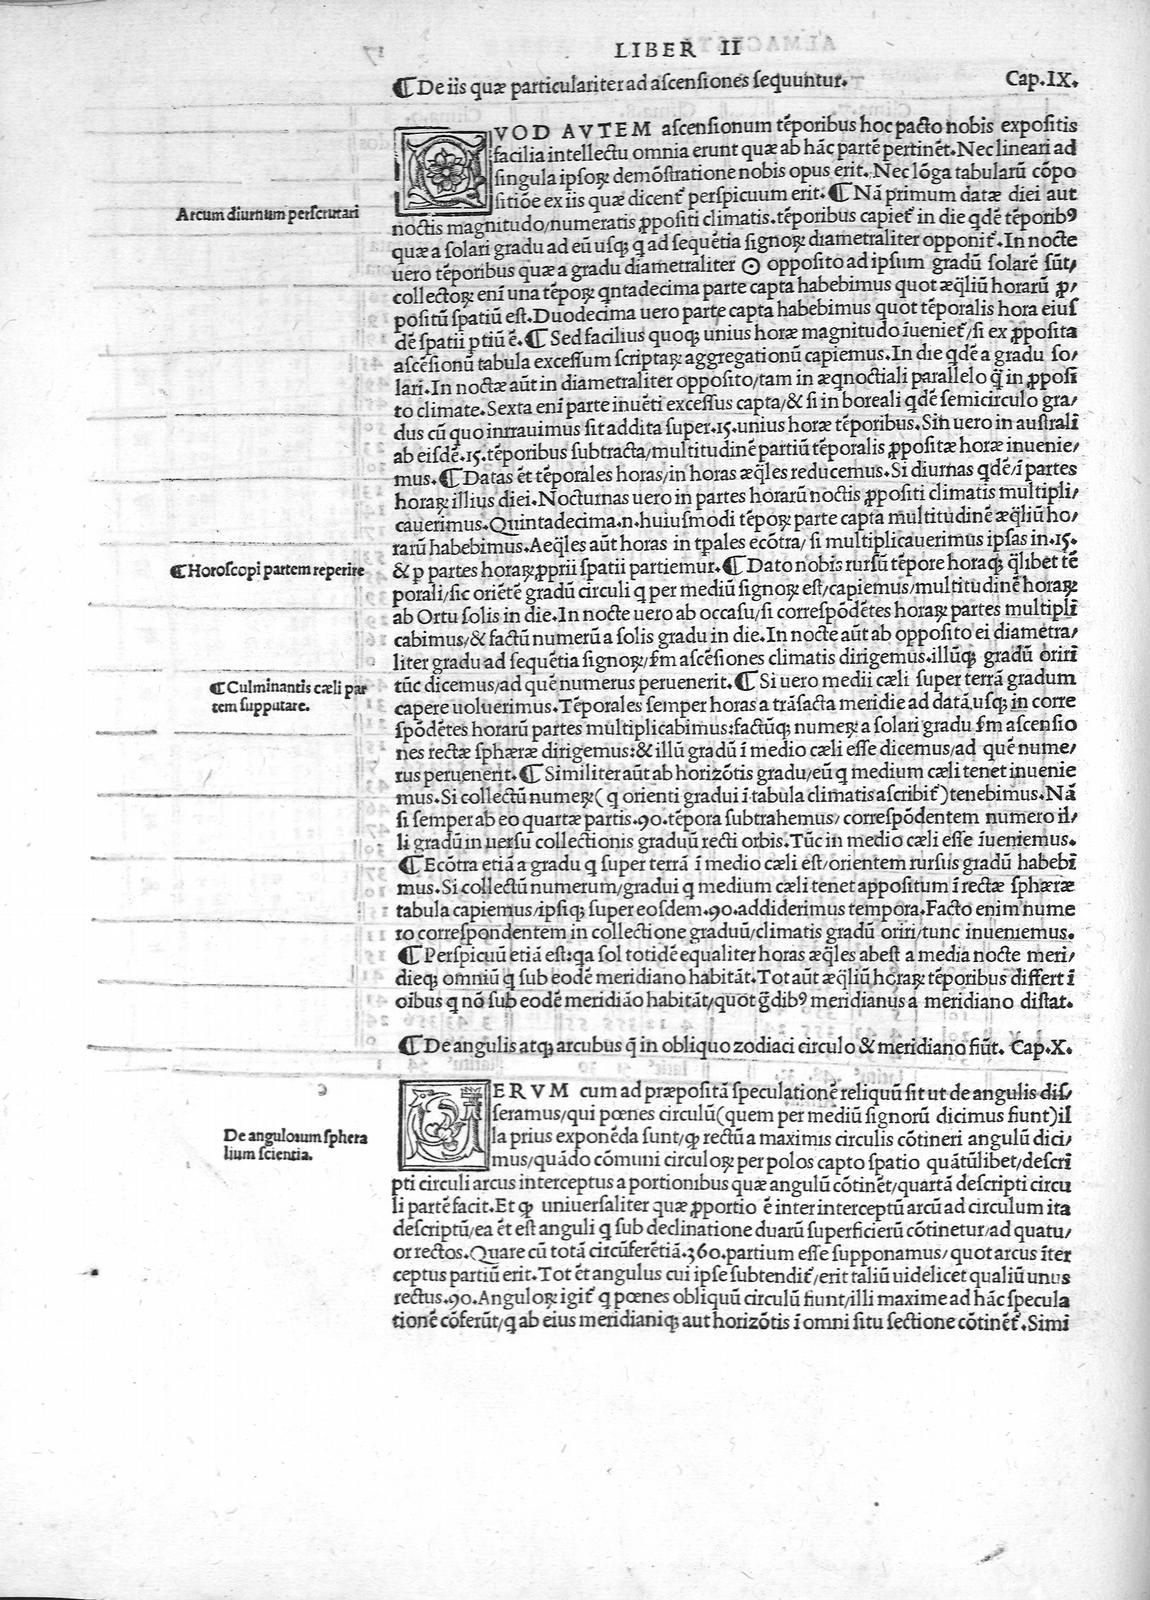 LIBER II
¶ De iis quæ particulariter ad ascensiones sequuntur. Cap. IX.
QVOD AVTEM ascensionum tẽporibus hoc pacto nobis expositis
facilia intellectu omnia erunt quæ ab hãc partẽ pertinẽt. Nec lineari ad
singula ipsoꝝ demõstratione nobis opus erit. Nec lõga tabularũ cõpo
sitiõe ex iis quæ dicent̃ perspicuum erit. ¶ Nã primum datæ diei aut
Arcum diurnum perscrutari
noctis magnitudo/numeratis ꝓpositi climatis. tẽporibus capiet̃ in die qdẽ tẽporibꝰ
quæ a solari gradu ad eũ usqꝫ q ad sequẽtia signoꝝ diametraliter opponit̃. In nocte
uero tẽporibus quæ a gradu diametraliter ☉ opposito ad ipsum gradũ solarẽ sũt/
collectoꝝ eni una tẽpoꝝ qntadecima parte capta habebimus quot æq̃liũ horarũ ꝓ/
positũ spatiũ est. Duodecima uero parte capta habebimus quot tẽporalis hora eius
dẽ spatii ptiũ ẽ. ¶ Sed facilius quoqꝫ unius horæ magnitudo ĩueniet̃/si ex ꝓposita
ascẽsionũ tabula excessum scriptaꝝ aggregationũ capiemus. In die qdẽ a gradu so/
lari. In noctæ aũt in diametraliter opposito/tam in æqnoctiali parallelo q̃ in ꝓposi
to climate. Sexta eni parte inuẽti excessus capta/& si in boreali qdẽ semicirculo gra/
dus cũ quo intrauimus sit addita super .15. unius horæ tẽporibus. Sin uero in australi
ab eisdẽ .15. tẽporibus subtracta/multitudinẽ partiũ tẽporalis ꝓpositæ horæ inuenie/
mus. ¶ Datas ẽt tẽporales horas/in horas æq̃les reducemus. Si diurnas qdẽ/ĩ partes
horaꝝ illius diei. Nocturnas uero in partes horarũ noctis ꝓpositi climatis multipli/
cauerimus. Quintadecima .n. huiusmodi tẽpoꝝ parte capta multitudinẽ æq̃liũ ho/
rarũ habebimus. Aeq̃les aũt horas in tpales ecõtra/si multiplicauerimus ipsas in .15.
¶ Horoscopi partem reperire
& p partes horaꝝ ꝓprii spatii partiemur. ¶ Dato nobis rursũ tẽpore horaqꝫ q̃libet tẽ
porali/sic oriẽtẽ gradũ circuli q per mediũ signoꝝ est/capiemus/multitudinẽ horaꝝ
ab Ortu solis in die. In nocte uero ab occasu/si correspõdẽtes horaꝝ partes multipli
cabimus/& factũ numerũ a solis gradu in die. In nocte aũt ab opposito ei diametra/
liter gradu ad sequẽtia signoꝝ/s̃m ascẽsiones climatis dirigemus. illũqꝫ gradũ oriri
¶ Culminantis cæli par
tem supputare.
tũc dicemus/ad quẽ numerus peruenerit. ¶ Si uero medii cæli super terrã gradum
capere uoluerimus. Tẽporales semper horas a trãsacta meridie ad datã usqꝫ in corre
spõdẽtes horarũ partes multiplicabimus: factũqꝫ numeꝝ a solari gradu s̃m ascensio
nes rectæ sphæræ dirigemus: & illũ gradũ ĩ medio cæli esse dicemus/ad quẽ nume/
rus peruenerit. ¶ Similiter aũt ab horizõtis gradu/eũ q medium cæli tenet inuenie
mus. Si collectũ numeꝝ ( q orienti gradui ĩ tabula climatis ascribit̃) tenebimus. Nã
si semper ab eo quartæ partis .90. tẽpora subtrahemus/ correspõdentem numero il/
li gradũ in uersu collectionis graduũ recti orbis. Tũc in medio cæli esse ĩueniemus.
¶ Ecõtra etiã a gradu q super terrã ĩ medio cæli est/orientem rursus gradũ habebi
mus. Si collectũ numerum/gradui q medium cæli tenet appositum ĩ rectæ sphæræ
tabula capiemus/ipsiqꝫ super eosdem .90. addiderimus tempora. Facto enim nume
ro correspondentem in collectione graduũ/climatis gradũ oriri/tunc inueniemus.
¶ Perspicuũ etiã est: qa sol totidẽ equaliter horas æq̃les abest a media nocte meri/
dieqꝫ omniũ q sub eodẽ meridiano habitãt. Tot aũt æq̃liũ horaꝝ tẽporibus differt ĩ
oibus q nõ sub eodẽ meridião habitãt/quot g̃dibꝰ meridianus a meridiano distat.
¶ De angulis atqꝫ arcubus q̃ in obliquo zodiaci circulo & meridiano fiũt. Cap. X.
VERVM cum ad præpositã speculationẽ reliquũ sit ut de angulis dis/
seramus/qui pœnes circulũ (quem per mediũ signorũ dicimus fiunt) il
De angulorum sphera
lium scientia.
la prius exponẽda sunt/ꝙ rectũ a maximis circulis cõtineri angulũ dici/
mus/quãdo cõmuni circuloꝝ per polos capto spatio quãtũlibet/descri
pti circuli arcus interceptus a portionibus quæ angulũ cõtinẽt/quartã descripti circu
li partẽ facit. Et ꝙ uniuersaliter quæ ꝓportio ẽ inter interceptũ arcũ ad circulum ita
descriptũ/ea ẽt est anguli q sub declinatione duarũ superficierũ cõtinetur/ad quatu/
or rectos. Quare cũ totã circũferẽtiã .360. partium esse supponamus/quot arcus ĩter
ceptus partiũ erit. Tot ẽt angulus cui ipse subtendit̃/erit taliũ uidelicet qualiũ unus
rectus .90. Anguloꝝ igit̃ q pœnes obliquũ circulũ fiunt/illi maxime ad hãc specula
tionẽ cõferũt/q ab eius meridianiqꝫ aut horizõtis ĩ omni situ sectione cõtinẽt̃. Simi